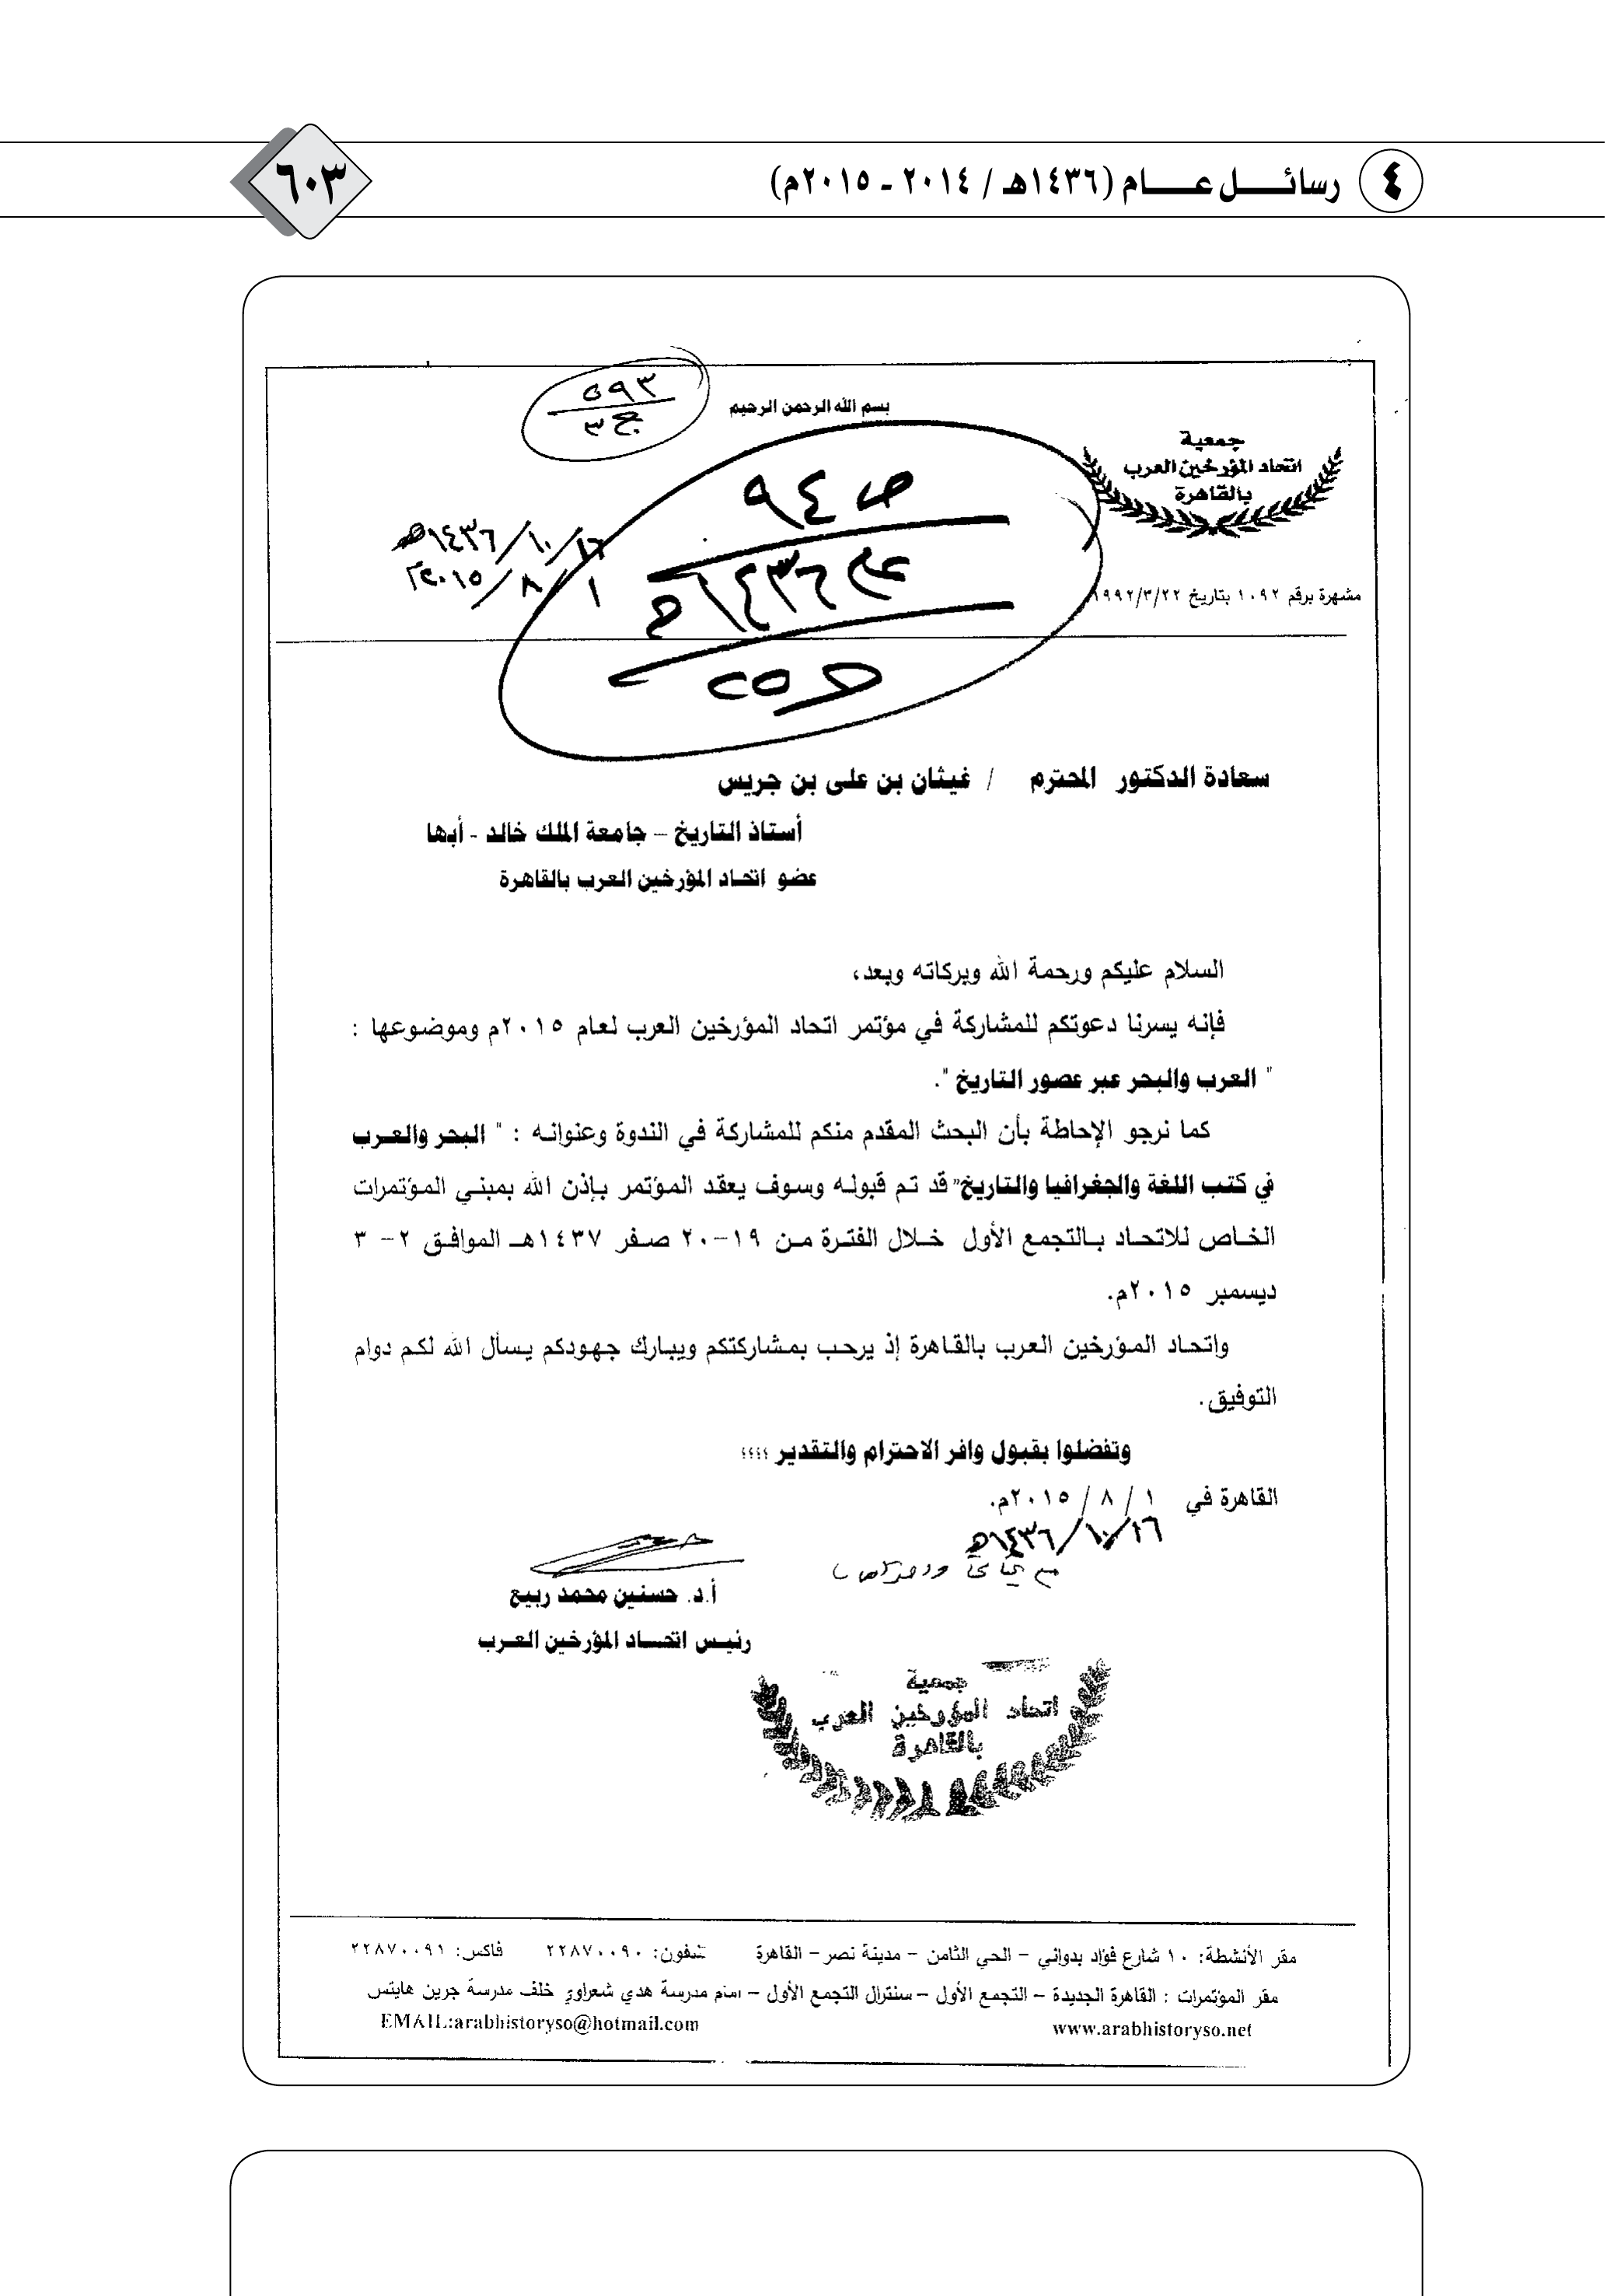 ٤ رسائل عام (١٤٣٦هـ / ٢٠١٤ - ٢٠١٥م)
٦٠٣
٥٩٣
ج ٣
بسم الله الرحمن الرحيم
جمعية
اتحاد المؤرخين العرب
بالقاهرة
ص ٩٤
عام ١٤٣٦هـ
١٦/١٠/١٤٣٦هـ
١/٨/٢٠١٥م
مشهرة برقم ١٠٩٢ بتاريخ ١٩٩٢/٣/٢٢
سعادة الدكتور المحترم / غيثان بن على بن جريس
أستاذ التاريخ – جامعة الملك خالد - أبها
عضو اتحاد المؤرخين العرب بالقاهرة
السلام عليكم ورحمة الله وبركاته وبعد،
فإنه يسرنا دعوتكم للمشاركة في مؤتمر اتحاد المؤرخين العرب لعام ٢٠١٥م وموضوعها :
" العرب والبحر عبر عصور التاريخ ".
كما نرجو الإحاطة بأن البحث المقدم منكم للمشاركة في الندوة وعنوانه : " البحر والعرب
في كتب اللغة والجغرافيا والتاريخ" قد تم قبوله وسوف يعقد المؤتمر بإذن الله بمبني المؤتمرات
الخاص للاتحاد بالتجمع الأول خلال الفترة من ١٩-٢٠ صفر ١٤٣٧هـ الموافق ٢- ٣
ديسمبر ٢٠١٥م.
واتحاد المؤرخين العرب بالقاهرة إذ يرحب بمشاركتكم ويبارك جهودكم يسأل الله لكم دوام
التوفيق.
وتفضلوا بقبول وافر الاحترام والتقدير ؛؛؛؛
القاهرة في ١ / ٨ / ٢٠١٥م.
١٦/١٠/١٤٣٦هـ
أ.د. حسنين محمد ربيع
رئيس اتحاد المؤرخين العرب
جمعية
اتحاد المؤرخين العرب
بالقاهرة
مقر الأنشطة: ١٠ شارع فؤاد بدواني – الحي الثامن – مدينة نصر – القاهرة تليفون: ٢٢٨٧٠٠٩٠ فاكس: ٢٢٨٧٠٠٩١
مقر المؤتمرات : القاهرة الجديدة – التجمع الأول – سنترال التجمع الأول – امام مدرسة هدي شعراوي خلف مدرسة جرين هايتس
www.arabhistoryso.net EMAIL:arabhistoryso@hotmail.com